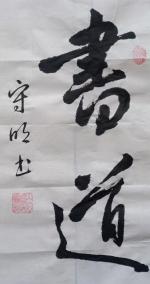 書道
守明书